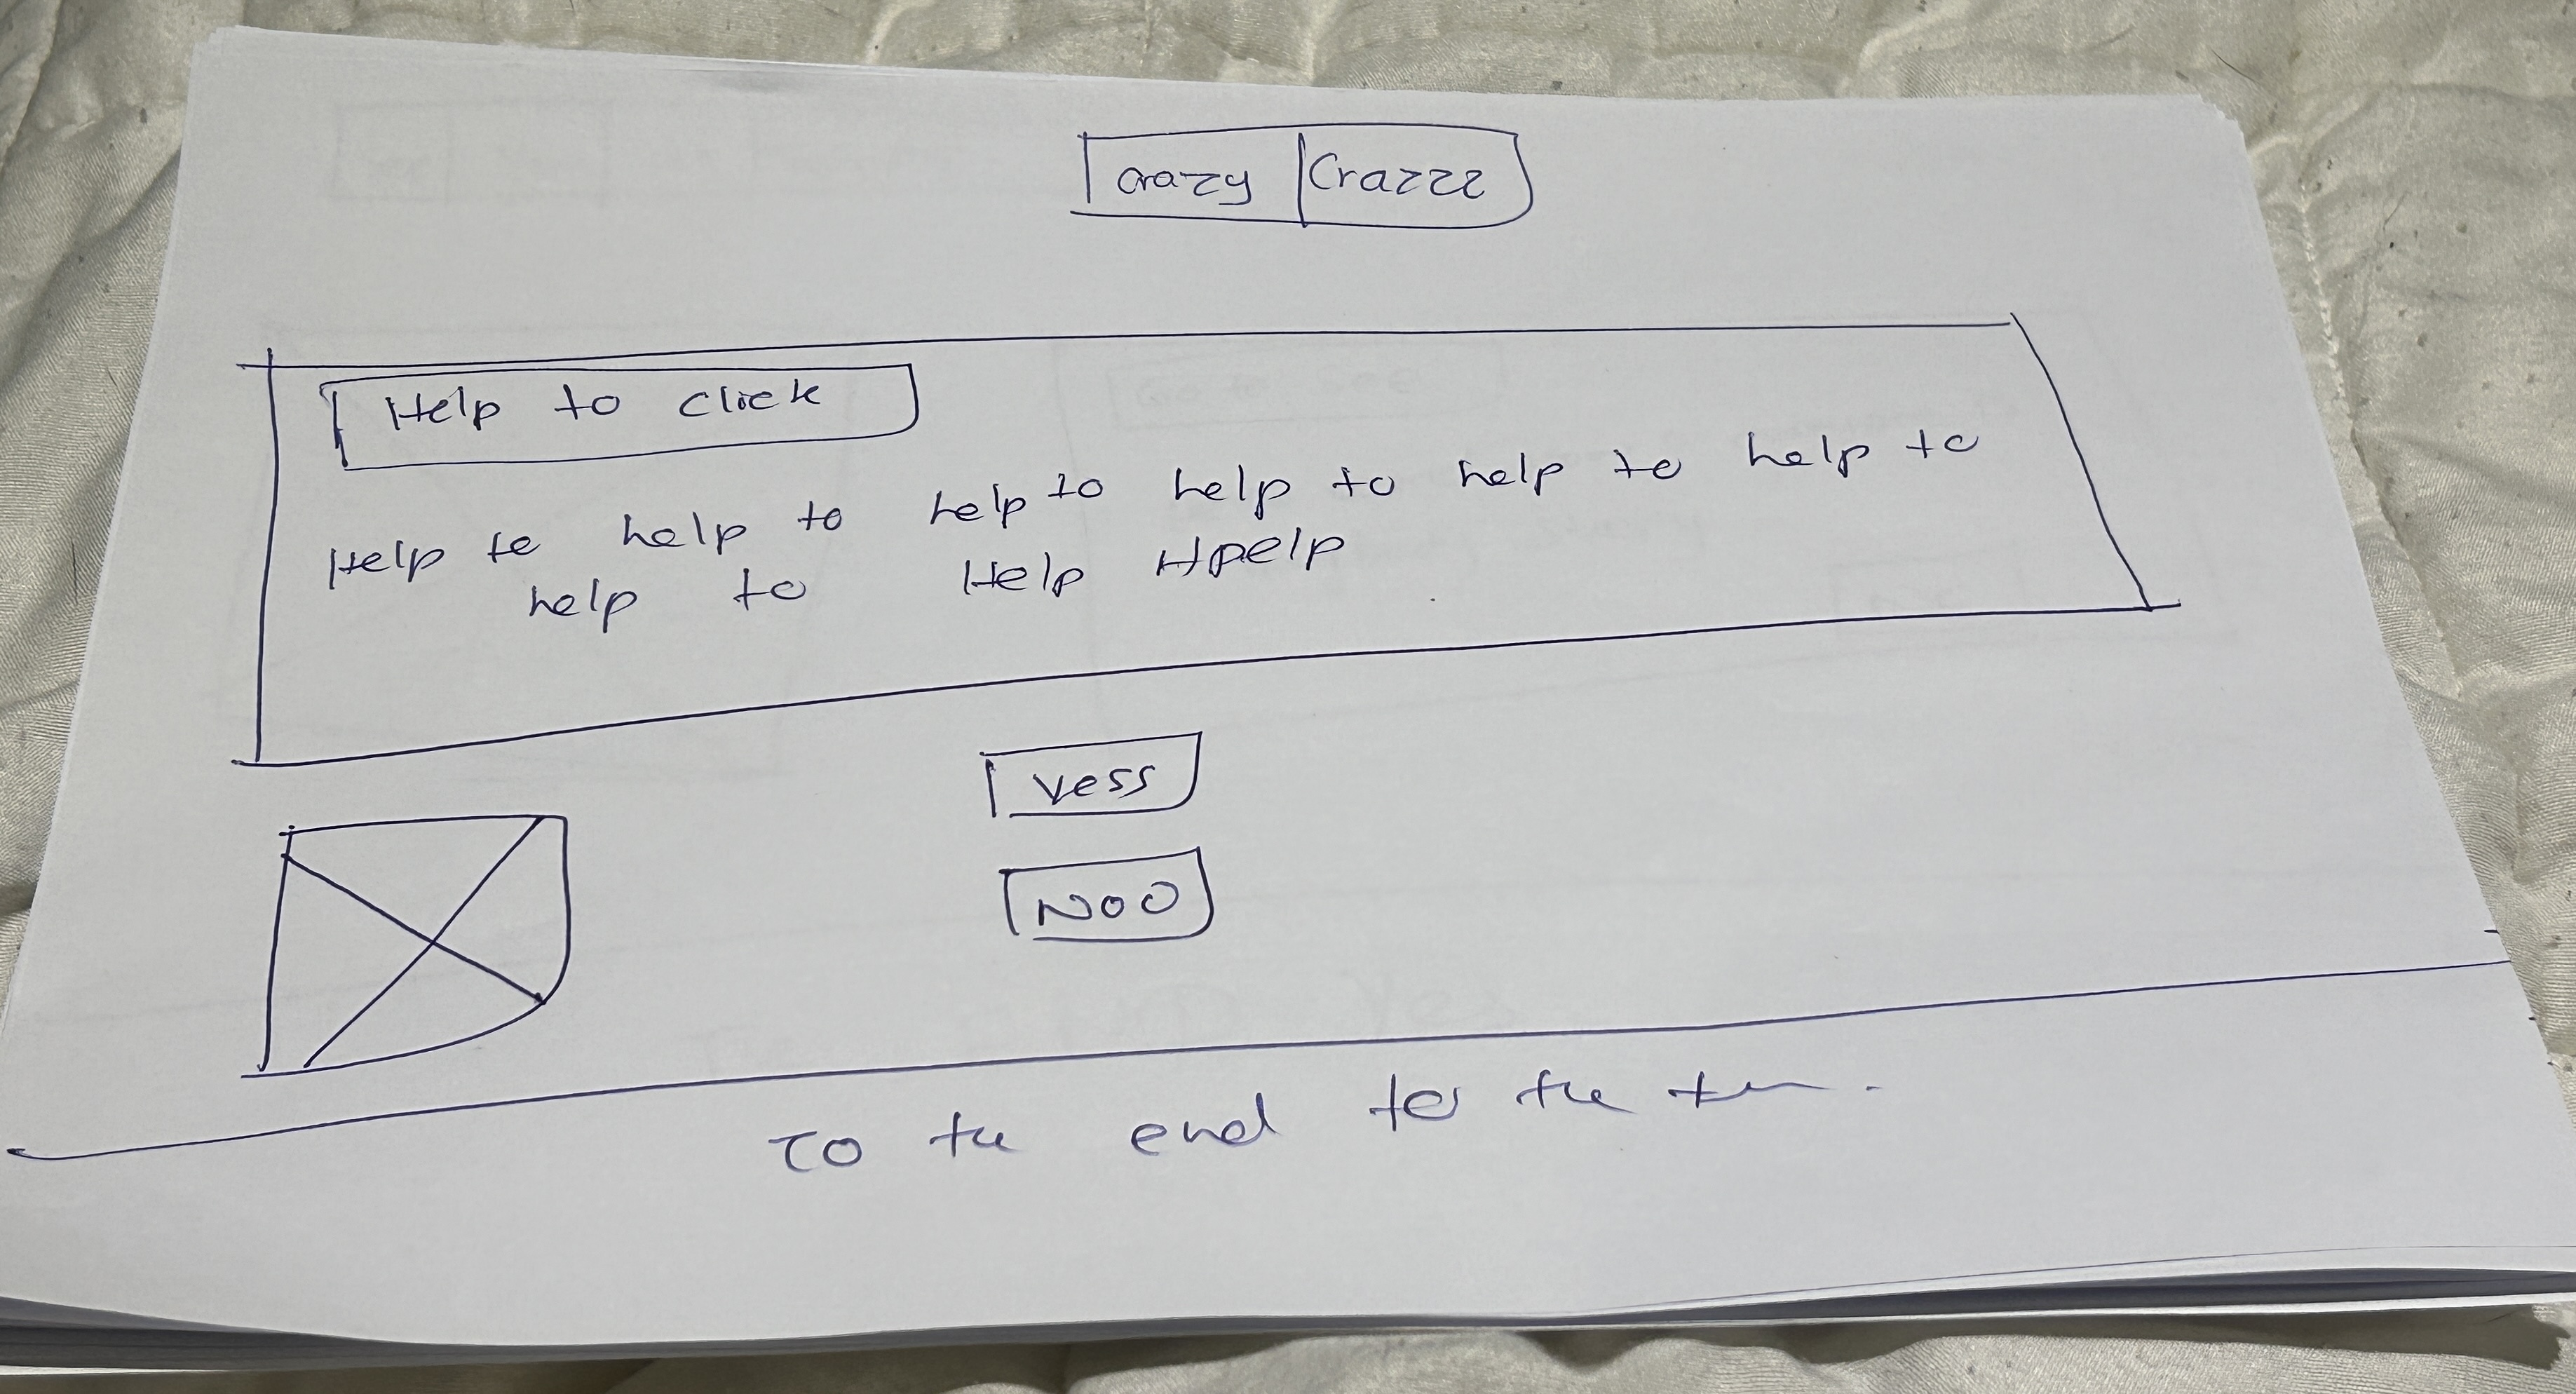 crazy Crazzz
Help to click
Help to help to help to help to help to help to
help to Help Hpelp
Yess
Noo
To the end to the